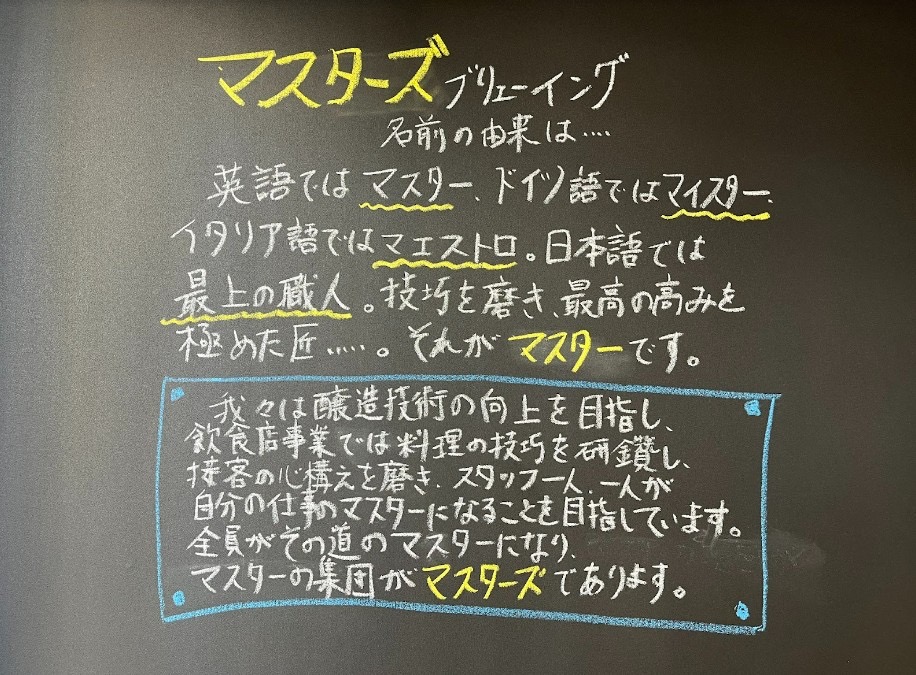 マスターズブリューイング
名前の由来は‥‥
英語ではマスター、ドイツ語ではマイスター、
イタリア語ではマエストロ。日本語では
最上の職人。技巧を磨き、最高の高みを
極めた匠‥‥。それがマスターです。
我々は醸造技術の向上を目指し、
飲食店事業では料理の技巧を研鑽し、
接客の心構えを磨き、スタッフ一人、一人が
自分の仕事のマスターになることを目指しています。
全員がその道のマスターになり、
マスターの集団がマスターズであります。